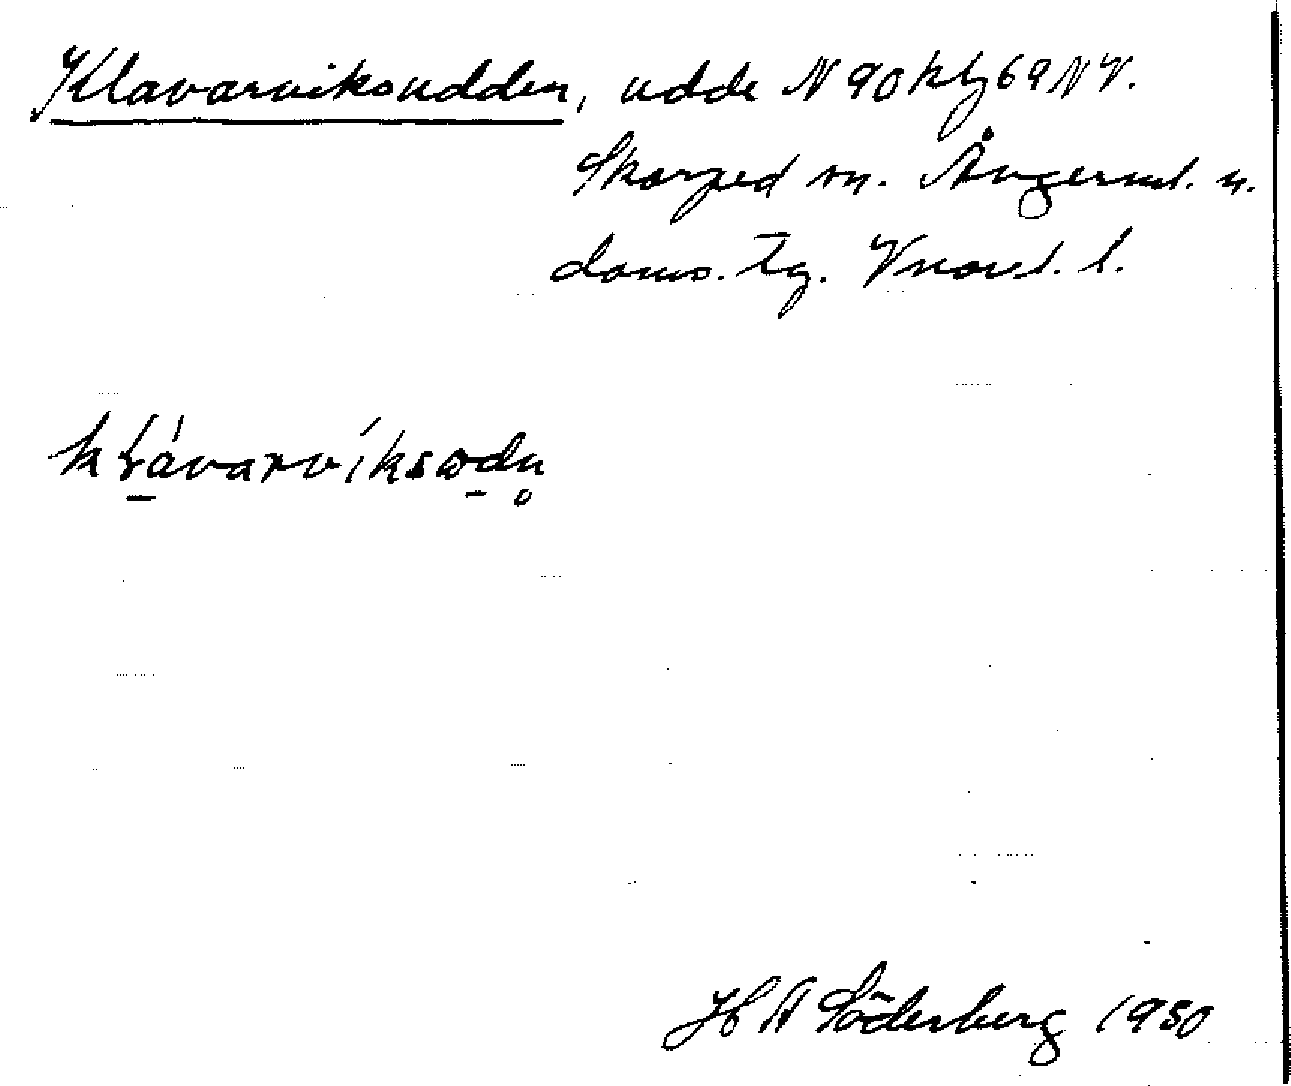 Klavarviksudden, udde N 90 kbf 69 NV.
Skorped sn. Ångerml. n.
doms. tg. Vnorl. l.
kḷávarvíksωdn̥
H A Söderberg 1930